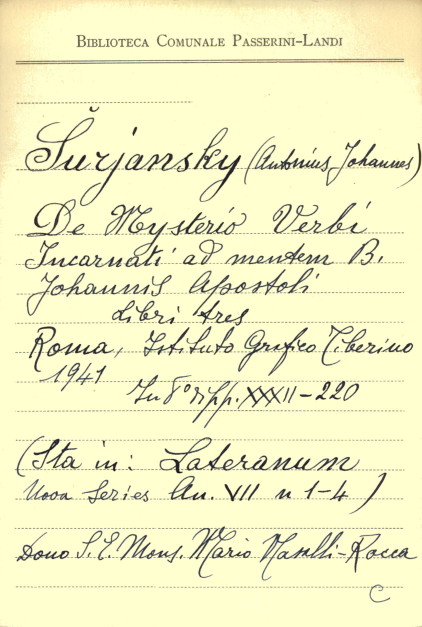 BIBLIOTECA COMUNALE PASSERINI-LANDI
Šurjansky (Antonius Johannes)
De Mysterio Verbi
Incarnati ad mentem B.
Johannis Apostoli
Libri tres
Roma, Istituto Grafico Tiberino
1941
In 8° di pp. XXXII-220
(Sta in: Lateranum
Nova Series An. VII n 1-4)
Dono S. E. Mons. Mario Nasalli-Rocca
C